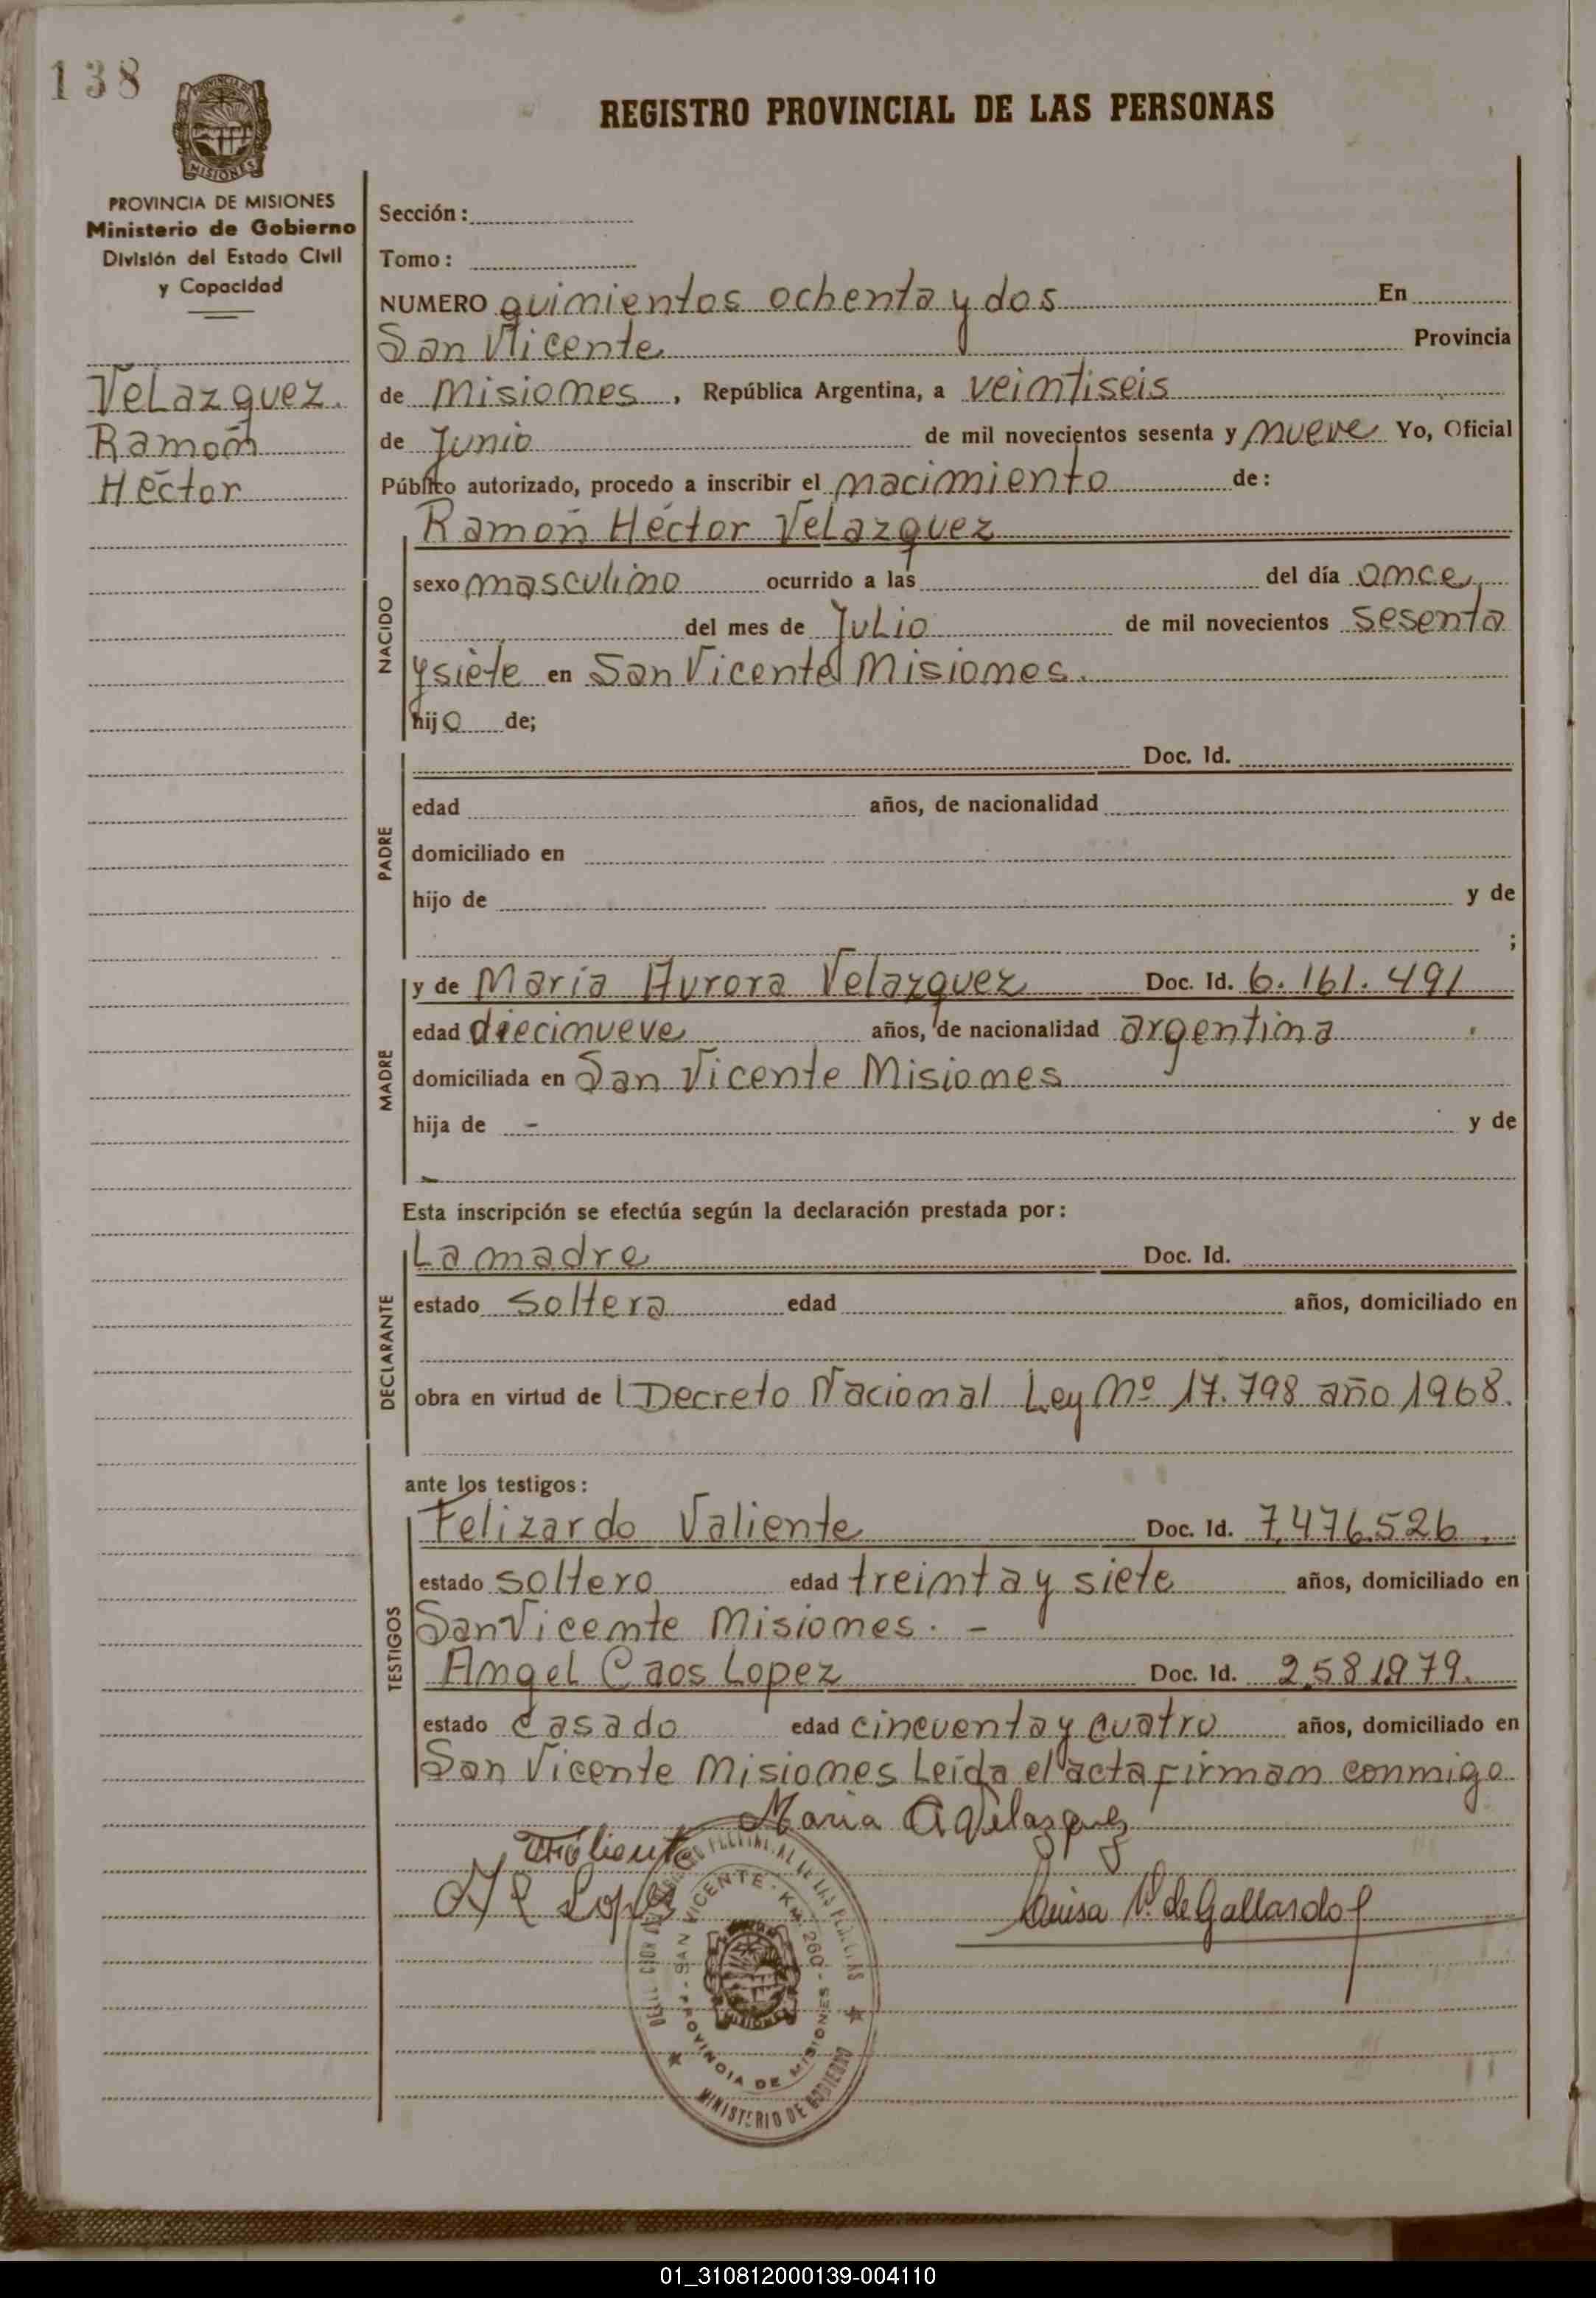 138
REGISTRO PROVINCIAL DE LAS PERSONAS
MISIONES
PROVINCIA DE MISIONES
Ministerio de Gobierno
División del Estado Civil
y Capacidad
Velazquez.
Ramón
Héctor
Sección:
Tomo:
NUMERO quinientos ochenta y dos En
San Vicente Provincia
de Misiones, República Argentina, a veintiseis
de Junio de mil novecientos sesenta y nueve Yo, Oficial
Público autorizado, procedo a inscribir el nacimiento de:
NACIDO
Ramón Héctor Velazquez
sexo masculino ocurrido a las del día once
del mes de Julio de mil novecientos sesenta
y siete en San Vicente Misiones.
hijo de;
PADRE
Doc. Id.
edad años, de nacionalidad
domiciliado en
hijo de y de
;
MADRE
y de María Aurora Velazquez Doc. Id. 6.161.491
edad diecinueve años, de nacionalidad argentina
domiciliada en San Vicente Misiones
hija de - y de
-
Esta inscripción se efectúa según la declaración prestada por:
DECLARANTE
La madre Doc. Id.
estado soltera edad años, domiciliado en
obra en virtud de Decreto Nacional Ley Nº 17.798 año 1968.
ante los testigos:
TESTIGOS
Felizardo Valiente Doc. Id. 7.476.526.
estado soltero edad treinta y siete años, domiciliado en
San Vicente Misiones. -
Angel Caos Lopez Doc. Id. 2.581.979.
estado casado edad cincuenta y cuatro años, domiciliado en
San Vicente Misiones Leída el acta firman conmigo
Maria A Velazquez
Lopez
Luisa V. de Gallardo
SAN VICENTE - KM. 260 -
PROVINCIA DE MISIONES
MINISTERIO DE GOBIERNO
01_310812000139-004110